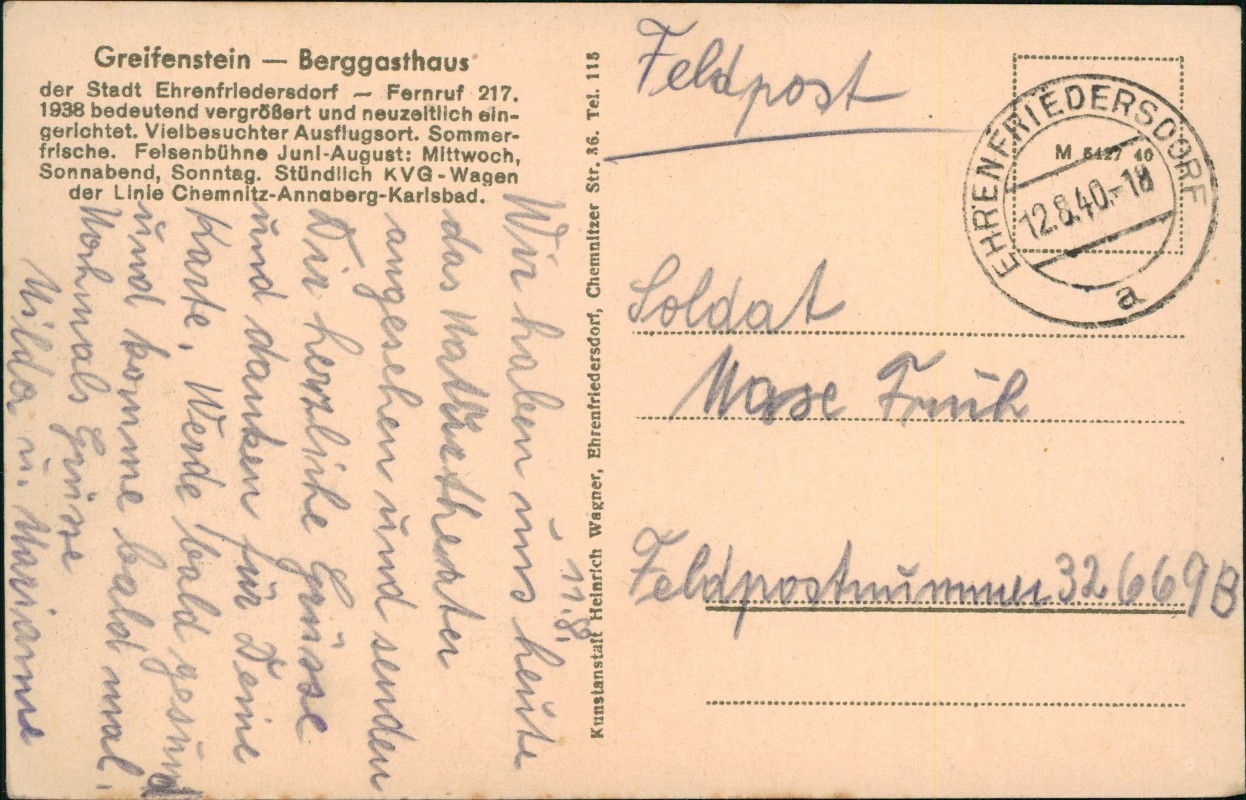 Greifenstein — Berggasthaus
der Stadt Ehrenfriedersdorf — Fernruf 217.
1938 bedeutend vergrößert und neuzeitlich ein-
gerichtet. Vielbesuchter Ausflugsort. Sommer-
frische. Felsenbühne Juni-August: Mittwoch,
Sonnabend, Sonntag. Stündlich KVG-Wagen
der Linie Chemnitz-Annaberg-Karlsbad.
11.8.
Wir haben uns heute
das Naturtheater
angesehen und senden
Dir herzliche Grüsse
und danken für Deine
Karte. Werde bald gesund
und komme bald mal.
Nochmals Grüsse
Hilda u. Marianne
Kunstanstalt Heinrich Wagner, Ehrenfriedersdorf, Chemnitzer Str. 36. Tel. 115
Feldpost
EHRENFRIEDERSDORF
12.8.40.-18
a
M 5427 40
Soldat
Früh
Feldpostnummer 32669B